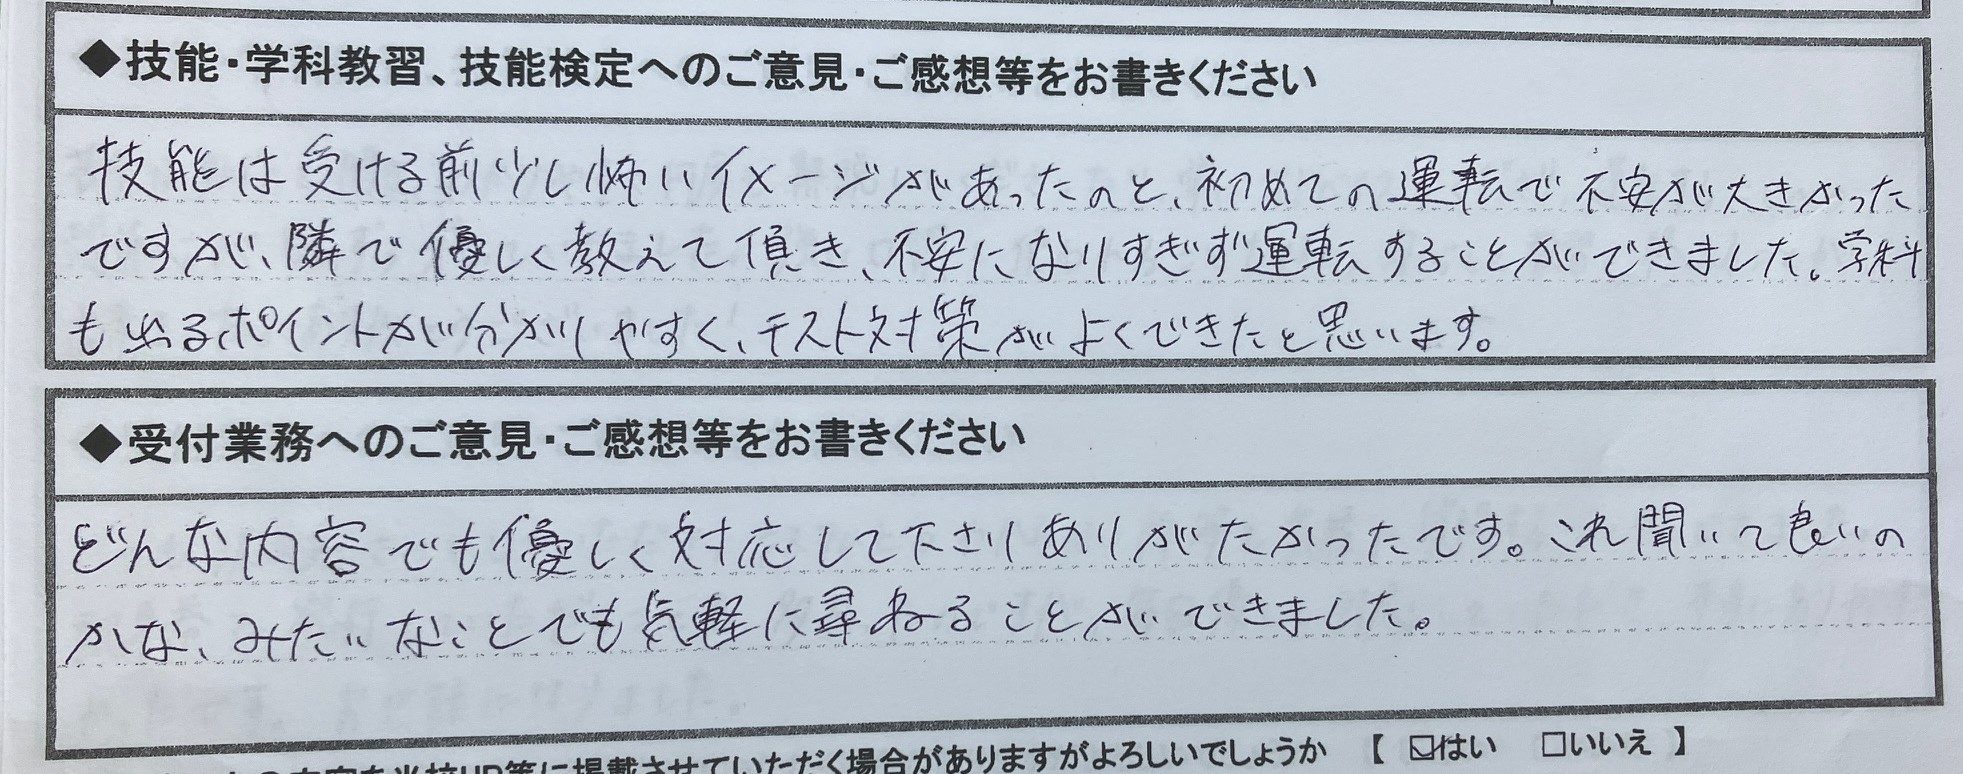 ◆技能・学科教習、技能検定へのご意見・ご感想等をお書きください
技能は受ける前少し怖いイメージがあったのと、初めての運転で不安が大きかった
ですが、隣で優しく教えて頂き、不安になりすぎず運転することができました。学科
も出るポイントが分かりやすく、テスト対策がよくできたと思います。
◆受付業務へのご意見・ご感想等をお書きください
どんな内容でも優しく対応して下さりありがたかったです。これ聞いて良いの
かな、みたいなことでも気軽に尋ねることができました。
HP等に掲載させていただく場合がありますがよろしいでしょうか 【 ☑はい □いいえ 】